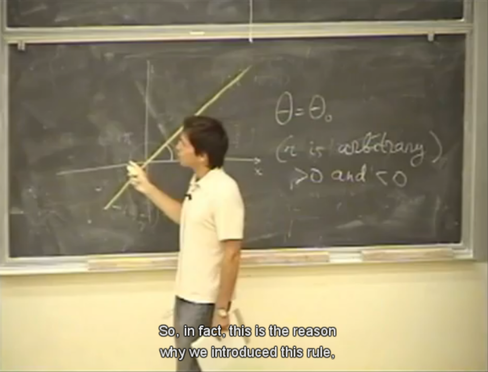 θ = θ₀
(r is arbitrary)
>0 and <0
x
So, in fact, this is the reason
why we introduced this rule,